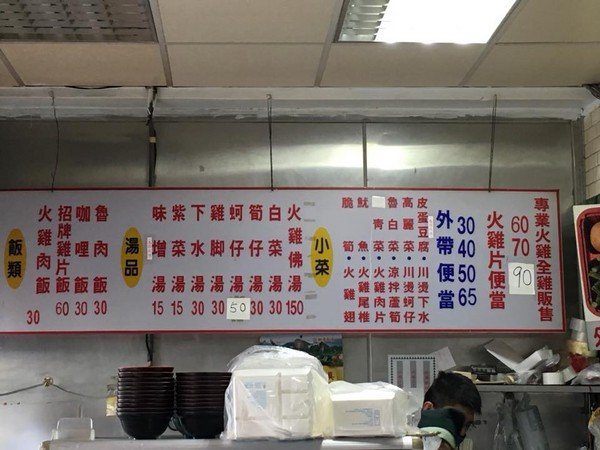 飯類
火雞肉飯 30
招牌雞片飯 60
咖哩飯 30
魯肉飯 30
湯品
味增湯 15
紫菜湯 15
下水湯 30
雞脚湯 30
蚵仔湯 50
筍仔湯 30
白菜湯 30
火雞佛湯 150
小菜
脆筍・火雞翅
魷魚・火雞尾椎
青菜・火雞肉片
魯白菜・涼拌蘆筍
高麗菜・川燙蚵仔
皮蛋豆腐・川燙下水
外帶便當
30
40
50
65
火雞片便當
60
70
90
專業火雞全雞販售